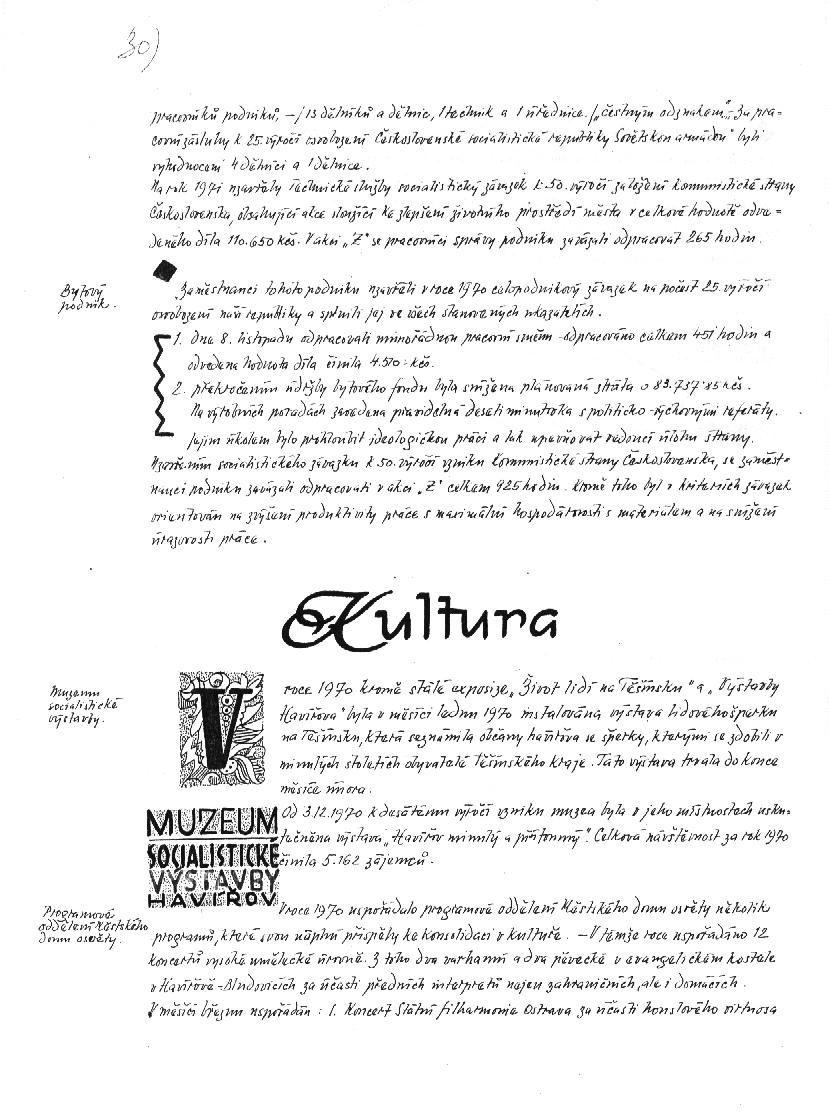 30)
pracovníků podniků, –/13 dělníků a dělnic, 1 technik a 1 úřednice./„čestným odznakem“. „Za pra=
covní zásluhy k 25. výročí osvobození Československé socialistické republiky Sovětskou armádou“ byli
vyhodnoceni 4 dělníci a 1 dělnice.
Na rok 1971 uzavřely Technické služby socialistický závazek k 50. výročí založení Komunistické strany
Československa, obsahující akce sloužící ke zlepšení životního prostředí města v celkové hodnotě odve=
deného díla 110.650 Kčs. V akci „Z“ se pracovníci správy podniku zavázali odpracovat 265 hodin.
Bytový
podnik.
Zaměstnanci tohoto podniku uzavřeli v roce 1970 celopodnikový závazek na počest 25. výročí
osvobození naší republiky a splnili jej ve všech stanovených ukazatelích.
1. Dne 8. listopadu odpracovali mimořádnou pracovní směnu - odpracováno celkem 451 hodin a
odvedena hodnota díla činila 4.510:- Kčs.
2. překročením údržby bytového fondu byla snížena plánovaná ztráta o 83.757'85 Kčs.
Na výrobních poradách zavedena pravidelná desetiminutovka s politicko-výchovnými referáty.
Jejím úkolem bylo prohloubit ideologickou práci a tak upevňovat vedoucí úlohu strany.
Uzavřením socialistického závazku k 50. výročí vzniku Komunistické strany Československa, se zaměst=
nanci podniku zavázali odpracovati v akci „Z“ celkem 925 hodin. Kromě toho byl v kriteriích závazek
orientován na zvýšení produktivity práce s maximální hospodárností s materiálem a na snížení
úrazovosti práce.
Kultura
Muzeum
socialistické
výstavby.
V roce 1970 kromě stálé expozice „Život lidí na Těšínsku“ a „Výstavby
Havířova“ byla v měsíci lednu 1970 instalována výstava lidového šperku
na Těšínsku, která seznámila občany Havířova se šperky, kterými se zdobili v
minulých stoletích obyvatelé Těšínského kraje. Tato výstava trvala do konce
měsíce února.
MUZEUM
SOCIALISTICKÉ
VÝSTAVBY
HAVÍŘOV
Od 3.12.1970 k desátému výročí vzniku muzea byla v jeho místnostech usku=
tečněna výstava „Havířov minulý a přítomný“. Celková návštěvnost za rok 1970
činila 5.162 zájemců.
Programové
oddělení Městského
domu osvěty.
V roce 1970 uspořádalo programové oddělení Městského domu osvěty několik
programů, které svou náplní přispěly ke konsolidaci v kultuře. – V témže roce uspořádáno 12
koncertů vysoké umělecké úrovně. Z toho dva varhanní a dva pěvecké v evangelickém kostele
v Havířově-Bludovicích za účasti předních interpretů nejen zahraničních, ale i domácích.
V měsíci březnu uspořádán: 1. Koncert Státní filharmonie Ostrava za účasti houslového virtuosa